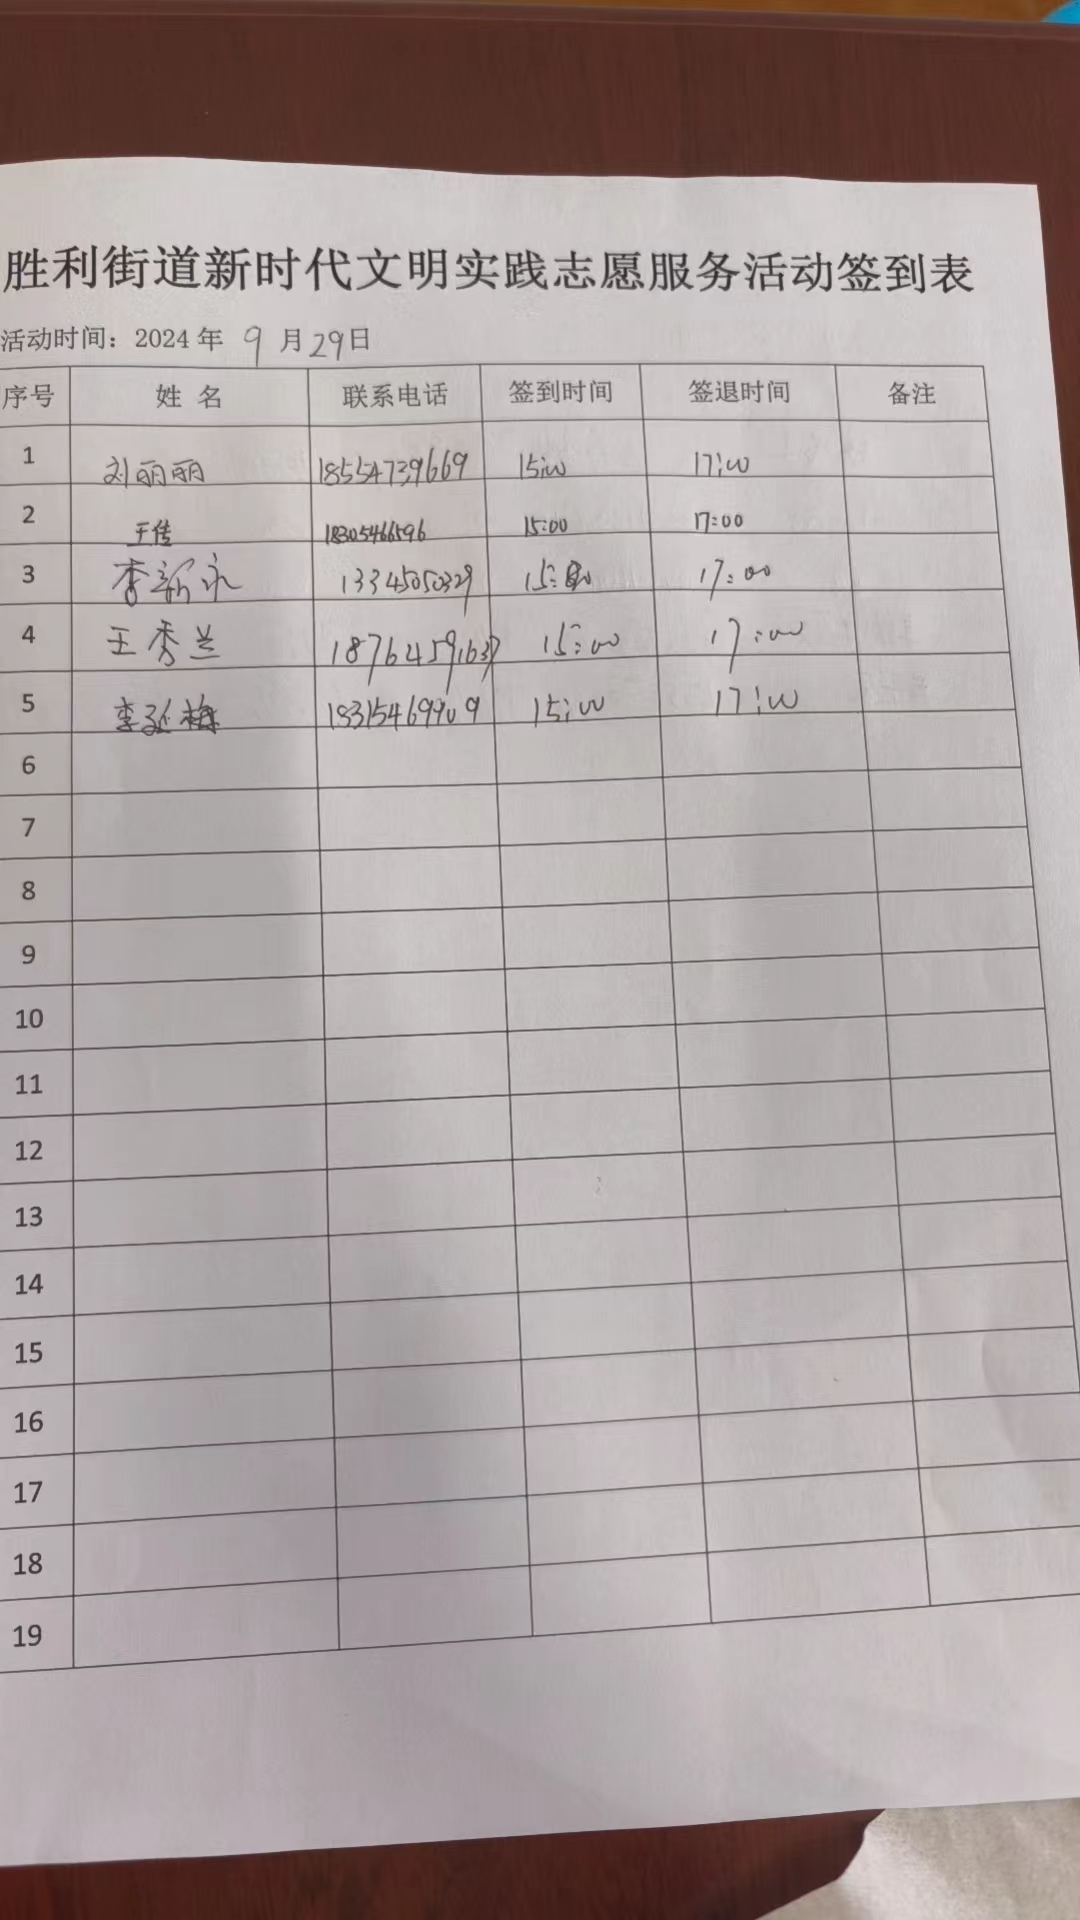 胜利街道新时代文明实践志愿服务活动签到表
活动时间：2024 年 9 月 29日
序号 姓 名 联系电话 签到时间 签退时间 备注
1 刘丽丽 18554739669 15:00 17:00
2 王传 18305466596 15:00 17:00
3 李新永 13345050329 15:00 17:00
4 王秀兰 18764591637 15:00 17:00
5 李延梅 18315469909 15:00 17:00
6
7
8
9
10
11
12
13
14
15
16
17
18
19